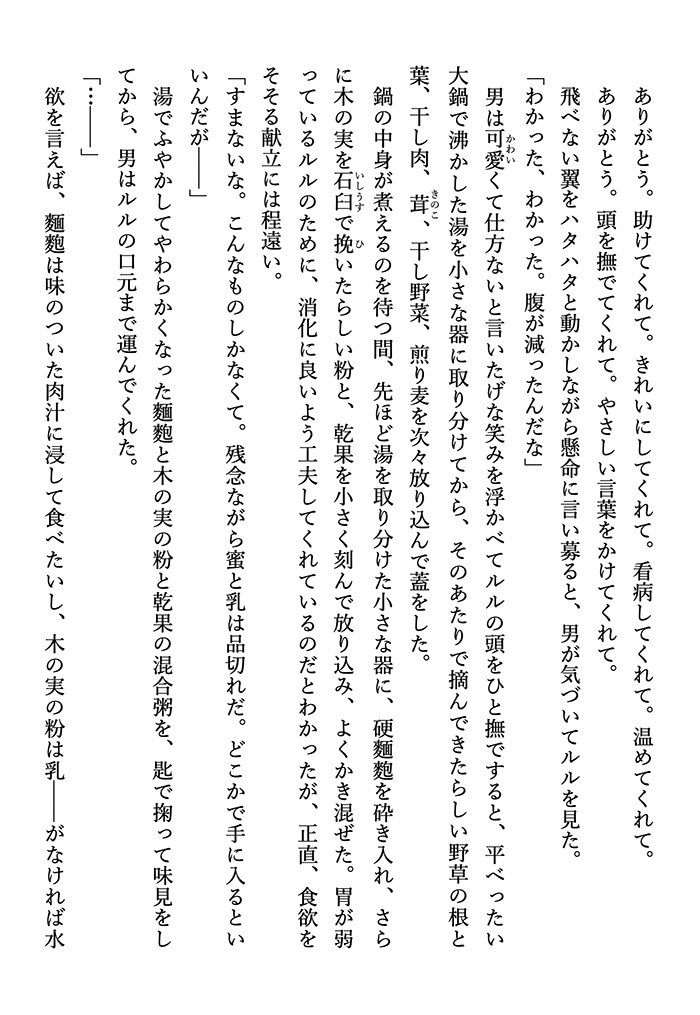 ありがとう。助けてくれて。きれいにしてくれて。看病してくれて。温めてくれて。
ありがとう。頭を撫でてくれて。やさしい言葉をかけてくれて。
飛べない翼をハタハタと動かしながら懸命に言い募ると、男が気づいてルルを見た。
「わかった、わかった。腹が減ったんだな」
男は可愛くて仕方ないと言いたげな笑みを浮かべてルルの頭をひと撫ですると、平べったい
大鍋で沸かした湯を小さな器に取り分けてから、そのあたりで摘んできたらしい野草の根と
葉、干し肉、茸、干し野菜、煎り麦を次々放り込んで蓋をした。
鍋の中身が煮えるのを待つ間、先ほど湯を取り分けた小さな器に、硬麵麭を砕き入れ、さら
に木の実を石臼で挽いたらしい粉と、乾果を小さく刻んで放り込み、よくかき混ぜた。胃が弱
っているルルのために、消化に良いよう工夫してくれているのだとわかったが、正直、食欲を
そそる献立には程遠い。
「すまないな。こんなものしかなくて。残念ながら蜜と乳は品切れだ。どこかで手に入るとい
いんだが――」
湯でふやかしてやわらかくなった麵麭と木の実の粉と乾果の混合粥を、匙で掬って味見をし
てから、男はルルの口元まで運んでくれた。
「…――」
欲を言えば、麵麭は味のついた肉汁に浸して食べたいし、木の実の粉は乳――がなければ水